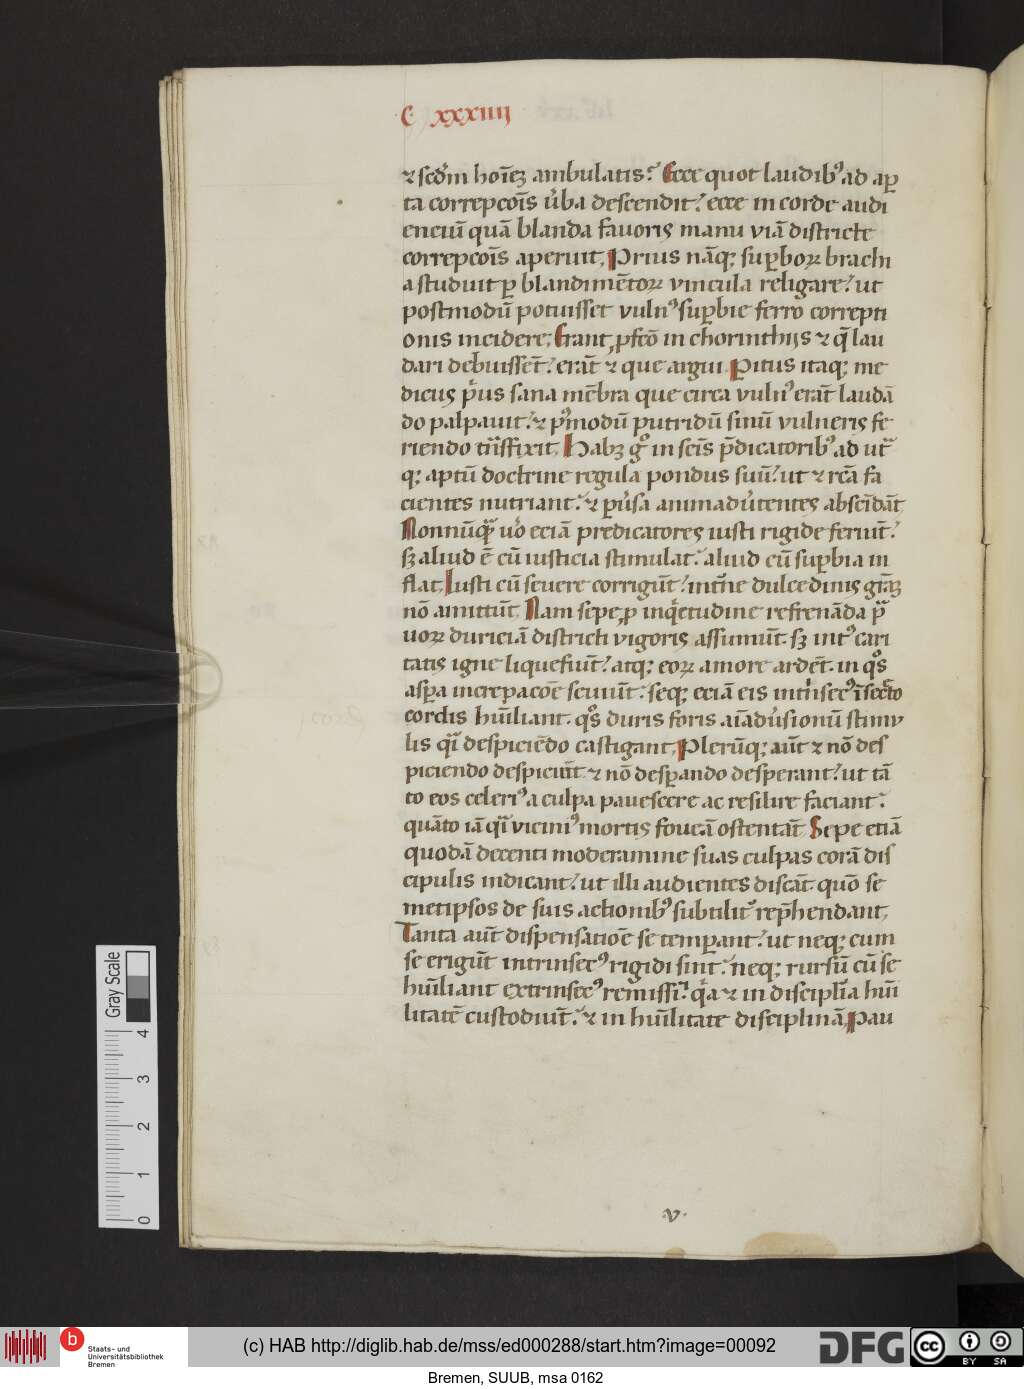 C xxxiiii
⁊ scd'm hoīeʒ ambulatis? Ecce quot laudibꝰ ad aꝑ
ta correpcoīs u'ba descendit? ecce in corde audi
enciū quā blanda fauoris manu viā districte
correpcoīs aperuit. Prius nāq; suꝑboꝝ brachi
a studuit ꝑ blandimētoꝝ vincula religare? ut
postmodū potuisset vulnꝰ suꝑbie ferro correpti
onis incidere; Erant ꝓfcō in chorinthijs ⁊ q̄ lau
dari debuissēt? erāt ⁊ que argui. Pitus itaq; me
dicus p'us sana mēbra que circa vulnꝰ erāt laudā
do palpauit? ⁊ pꝰmodū putridū sinū vulneris fe
riendo trāsfixit. Habʒ gͦ in scīs p̄dicatoribꝰ ad utͣ
q; aptū doctrine regula pondus suū? ut ⁊ rcā fa
cientes nutriant? ⁊ ꝑu'sa animadu'tentes abscīdāt
Nonnūqͣ uͦ eciā predicatores iusti rigide feriūt?
sʒ aliud ē cū iusticia stimulat? aliud cū suꝑbia in
flat. Iusti cū seuere corrigūt? int'ne dulcedinis gr̄aʒ
nō amittūt. Nam sepe ꝓ inq'etudine refrenāda pͣ
uoꝝ duriciā districti vigoris assumūt. sʒ intꝰ cari
tatis igne liquefiūt? atq; eoꝝ amore ardēt. in qͦs
asꝑa increpacōe seuiūt? seq; eciā eis int'nsecꝰ ī sec'to
cordis hūiliant. qͦs duris foris aīadu'sionū stimu
lis qͣi despiciēdo castigant. Plerūq; aūt ⁊ nō des
piciendo despiciūt ⁊ nō desꝑando desperant? ut tā
to eos celeriꝰ a culpa pauescere ac resilire faciant?
quāto iā qͣi viciniꝰ mortis foueā ostentāt Sepe etiā
quodā decenti moderamine suas culpas corā dis
cipulis indicant? ut illi audientes discāt. quō se
metipsos de suis actionibꝰ subtilit' rep̄hendant.
Tanta aūt dispensatiōe se temꝑant? ut neq; cum
se erigūt intrinsecꝰ rigidi sint? neq; rursū cū se
hūiliant extrinsecꝰ remissi? q'a ⁊ in disciplīa hūi
litatē custodiūt? ⁊ in hūilitate disciplinā. Pau
.v.
Gray Scale
4
3
2
1
0
b
Staats- und
Universitätsbibliothek
Bremen
(c) HAB http://diglib.hab.de/mss/ed000288/start.htm?image=00092
DFG
cc
BY SA
Bremen, SUUB, msa 0162